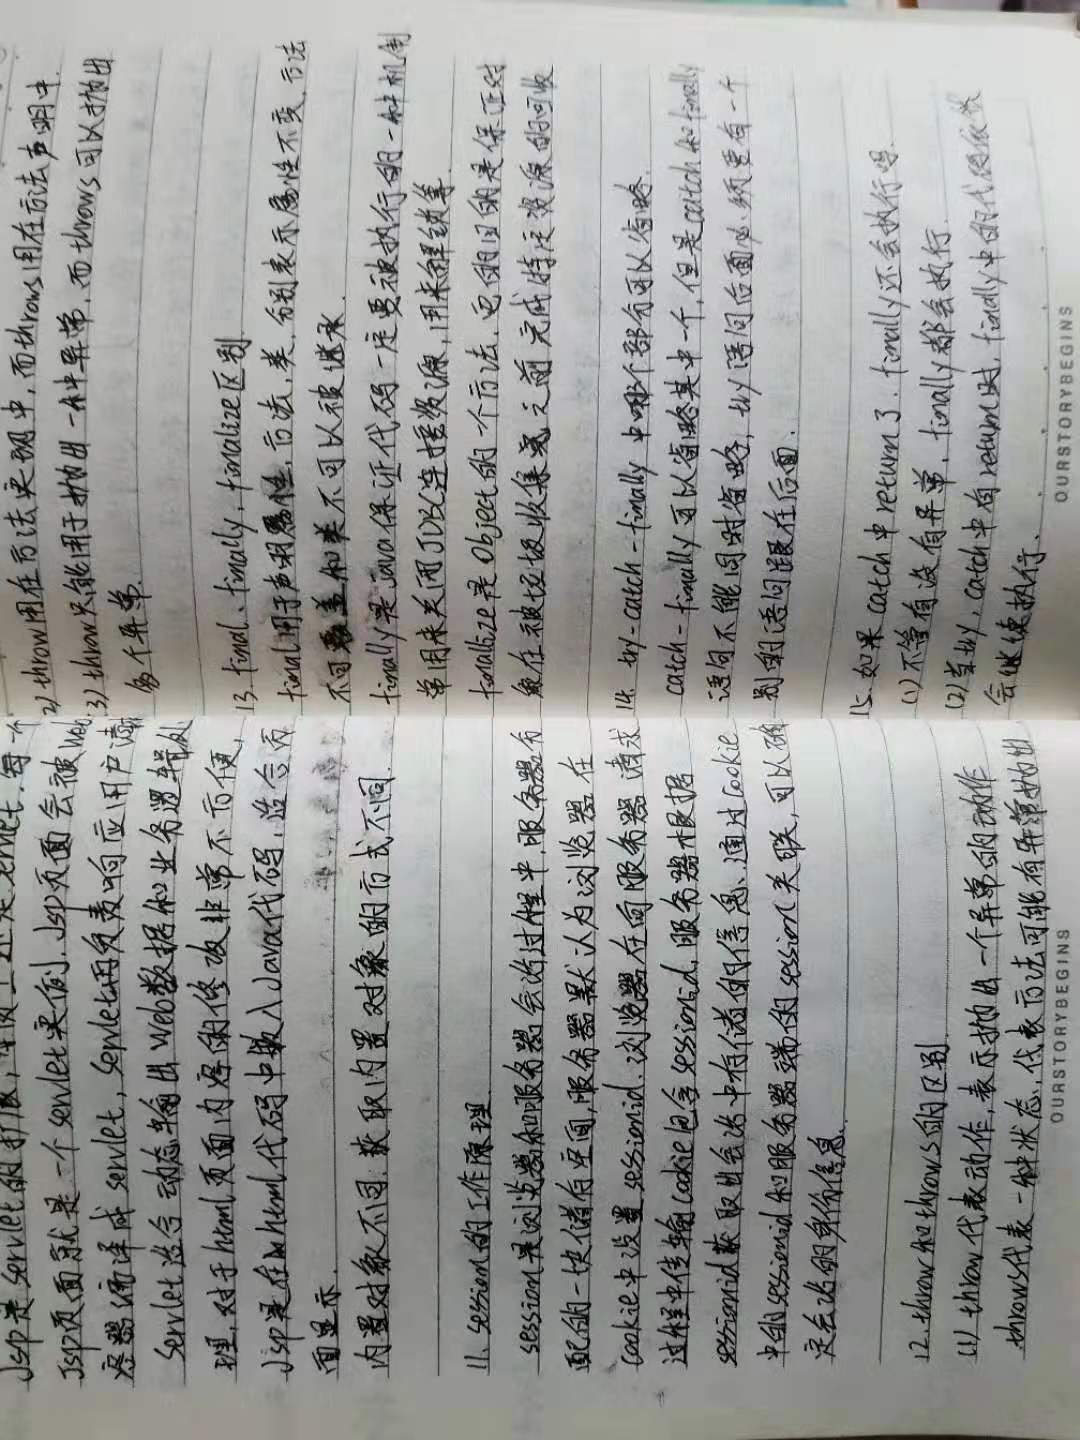 Jsp是servlet的扩展,本质上还是servlet,每一个
Jsp页面就是一个servlet实例,Jsp页面会被web
容器编译成servlet,servlet再负责响应用户请求
servlet适合动态输出web数据和业务逻辑处
理,对于html页面内容的修改非常不方便,
Jsp是在html代码中嵌入Java代码,适合页
面显示.
内置对象不同,获取内置对象的方式不同.
11. session的工作原理
session是浏览器和服务器会话过程中,服务器分
配的一块储存空间,服务器默认为浏览器在
cookie中设置sessionid,浏览器在向服务器请求
过程中传输cookie包含sessionid,服务器根据
sessionid获取出会话中存储的信息,通过cookie
中的sessionid和服务器端的session关联,可以确
定会话的身份信息.
12. throw和throws的区别
(1) throw代表动作,表示抛出一个异常的动作
throws代表一种状态,代表方法可能有异常抛出
OURSTORYBEGINS
2) throw用在方法实现中,而throws用在方法声明中.
3) throw只能用于抛出一种异常,而throws可以抛出
多个异常.
13. final、finally、finalize区别
final用于声明属性,方法,类,分别表示属性不变,方法
不可覆盖和类不可以被继承.
finally是java保证代码一定要被执行的一种机制
常用来关闭JDBC连接资源,用来解锁等.
finalize是Object的一个方法,它的目的是保证对
象在被垃圾收集之前完成特定资源的回收
14. try-catch-finally中哪个部分可以省略.
catch-finally可以省略其中一个,但是catch和finally
语句不能同时省略,try语句后面必须要有一个
别的语句跟在后面.
15. 如果catch中return了,finally还会执行吗.
(1) 不管有没有异常,finally都会执行.
(2) 当try,catch中有return时,finally中的代码依然
会继续执行.
OURSTORYBEGINS